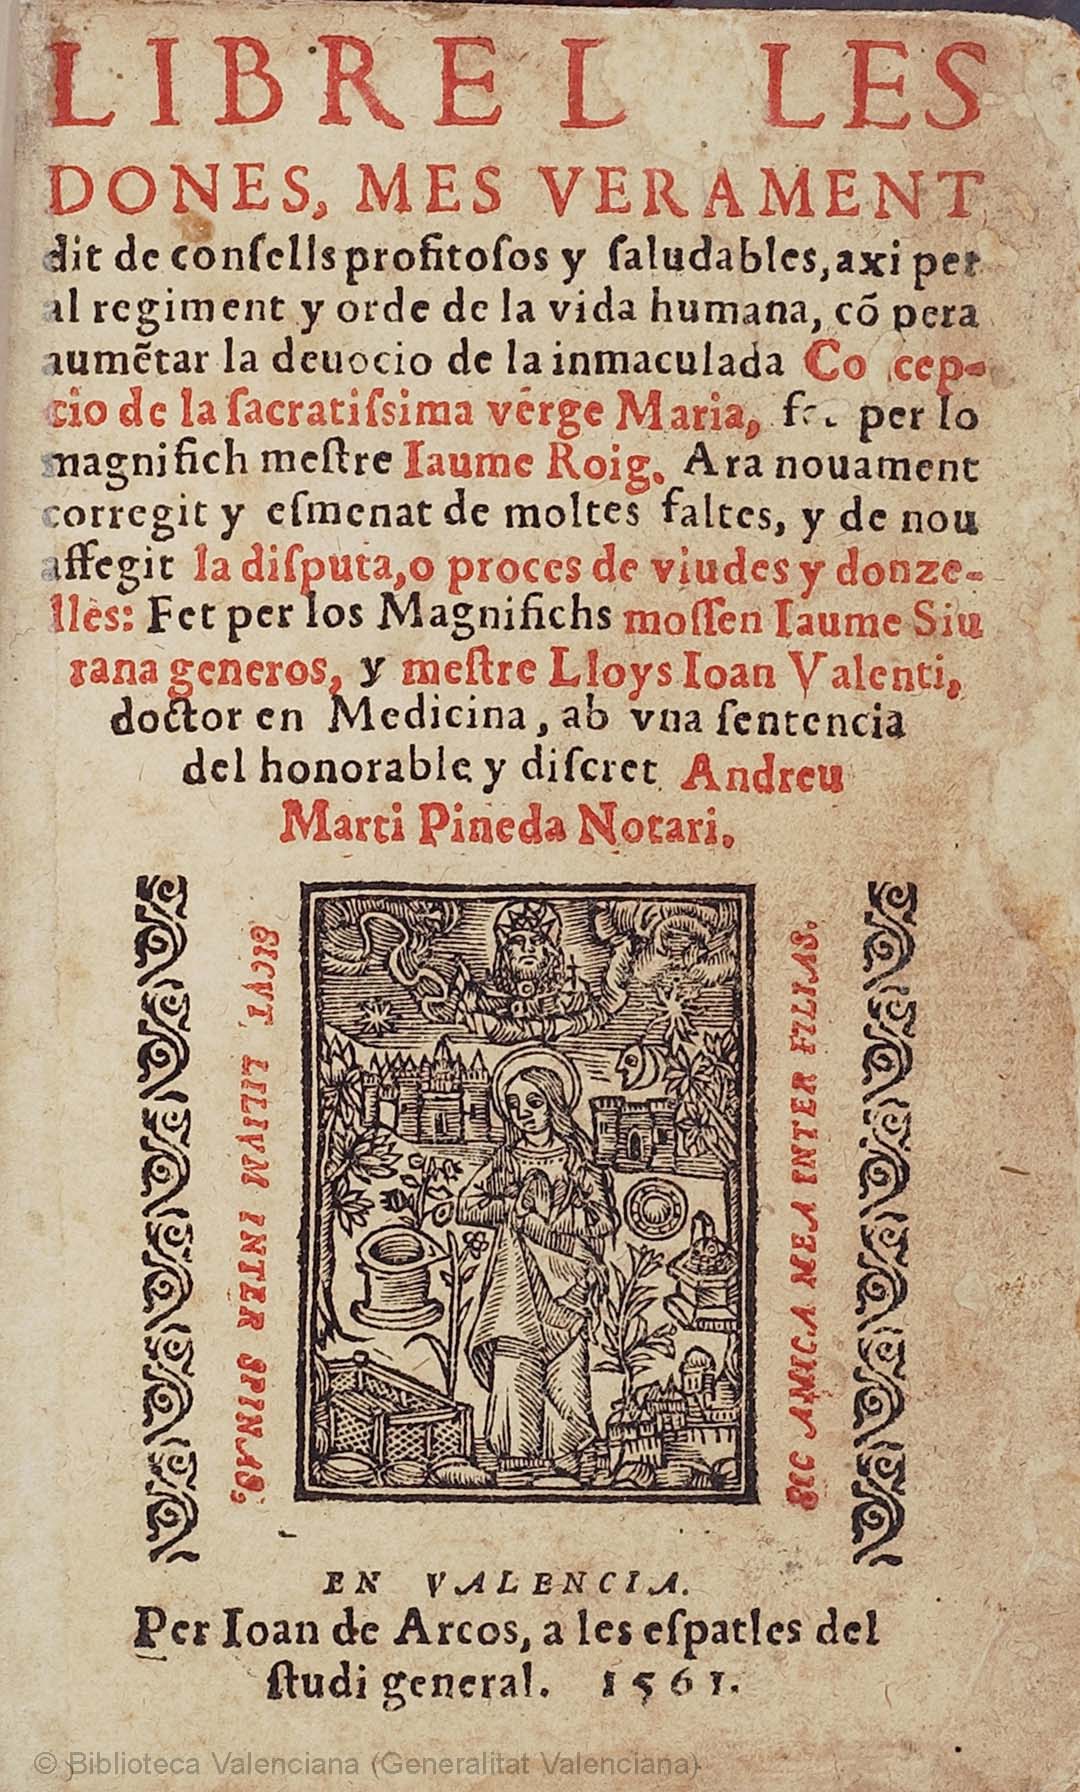 LIBRE L LES
DONES, MES VERAMENT
dit de conſells profitoſos y ſaludables, axi per
al regiment y orde de la vida humana, cõ pera
aumẽtar la deuocio de la inmaculada Co cep-
cio de la ſacratiſsima vẽrge Maria, per lo
magnifich meſtre Iaume Roig. Ara nouament
corregit y eſmenat de moltes faltes, y de nou
affegit la diſputa, o proces de viudes y donze-
lles: Fet per los Magnifichs moſſen Iaume Siu
rana generos, y meſtre Lloys Ioan Valenti,
doctor en Medicina, ab vna ſentencia
del honorable y diſcret Andreu
Marti Pineda Notari.
SICVT LILIVM INTER SPINAS,
SIC AMICA MEA INTER FILIAS.
EN VALENCIA.
Per Ioan de Arcos, a les eſpatles del
ſtudi general. 1561.
© Biblioteca Valenciana (Generalitat Valenciana)